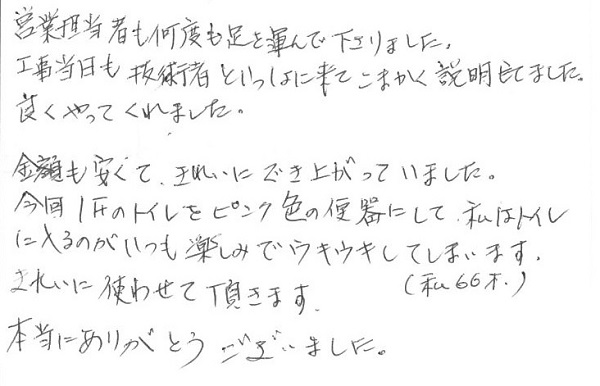 営業担当者も何度も足を運んで下さりました。
工事当日も技術者といっしょに来てこまかく説明してました。
良くやってくれました。
金額も安くて、きれいにでき上がっていました。
今回1Fのトイレをピンク色の便器にして、私はトイレ
に入るのがいつも楽しみでウキウキしてしまいます。
きれいに使わせて頂きます。
(私66才.)
本当にありがとうございました。